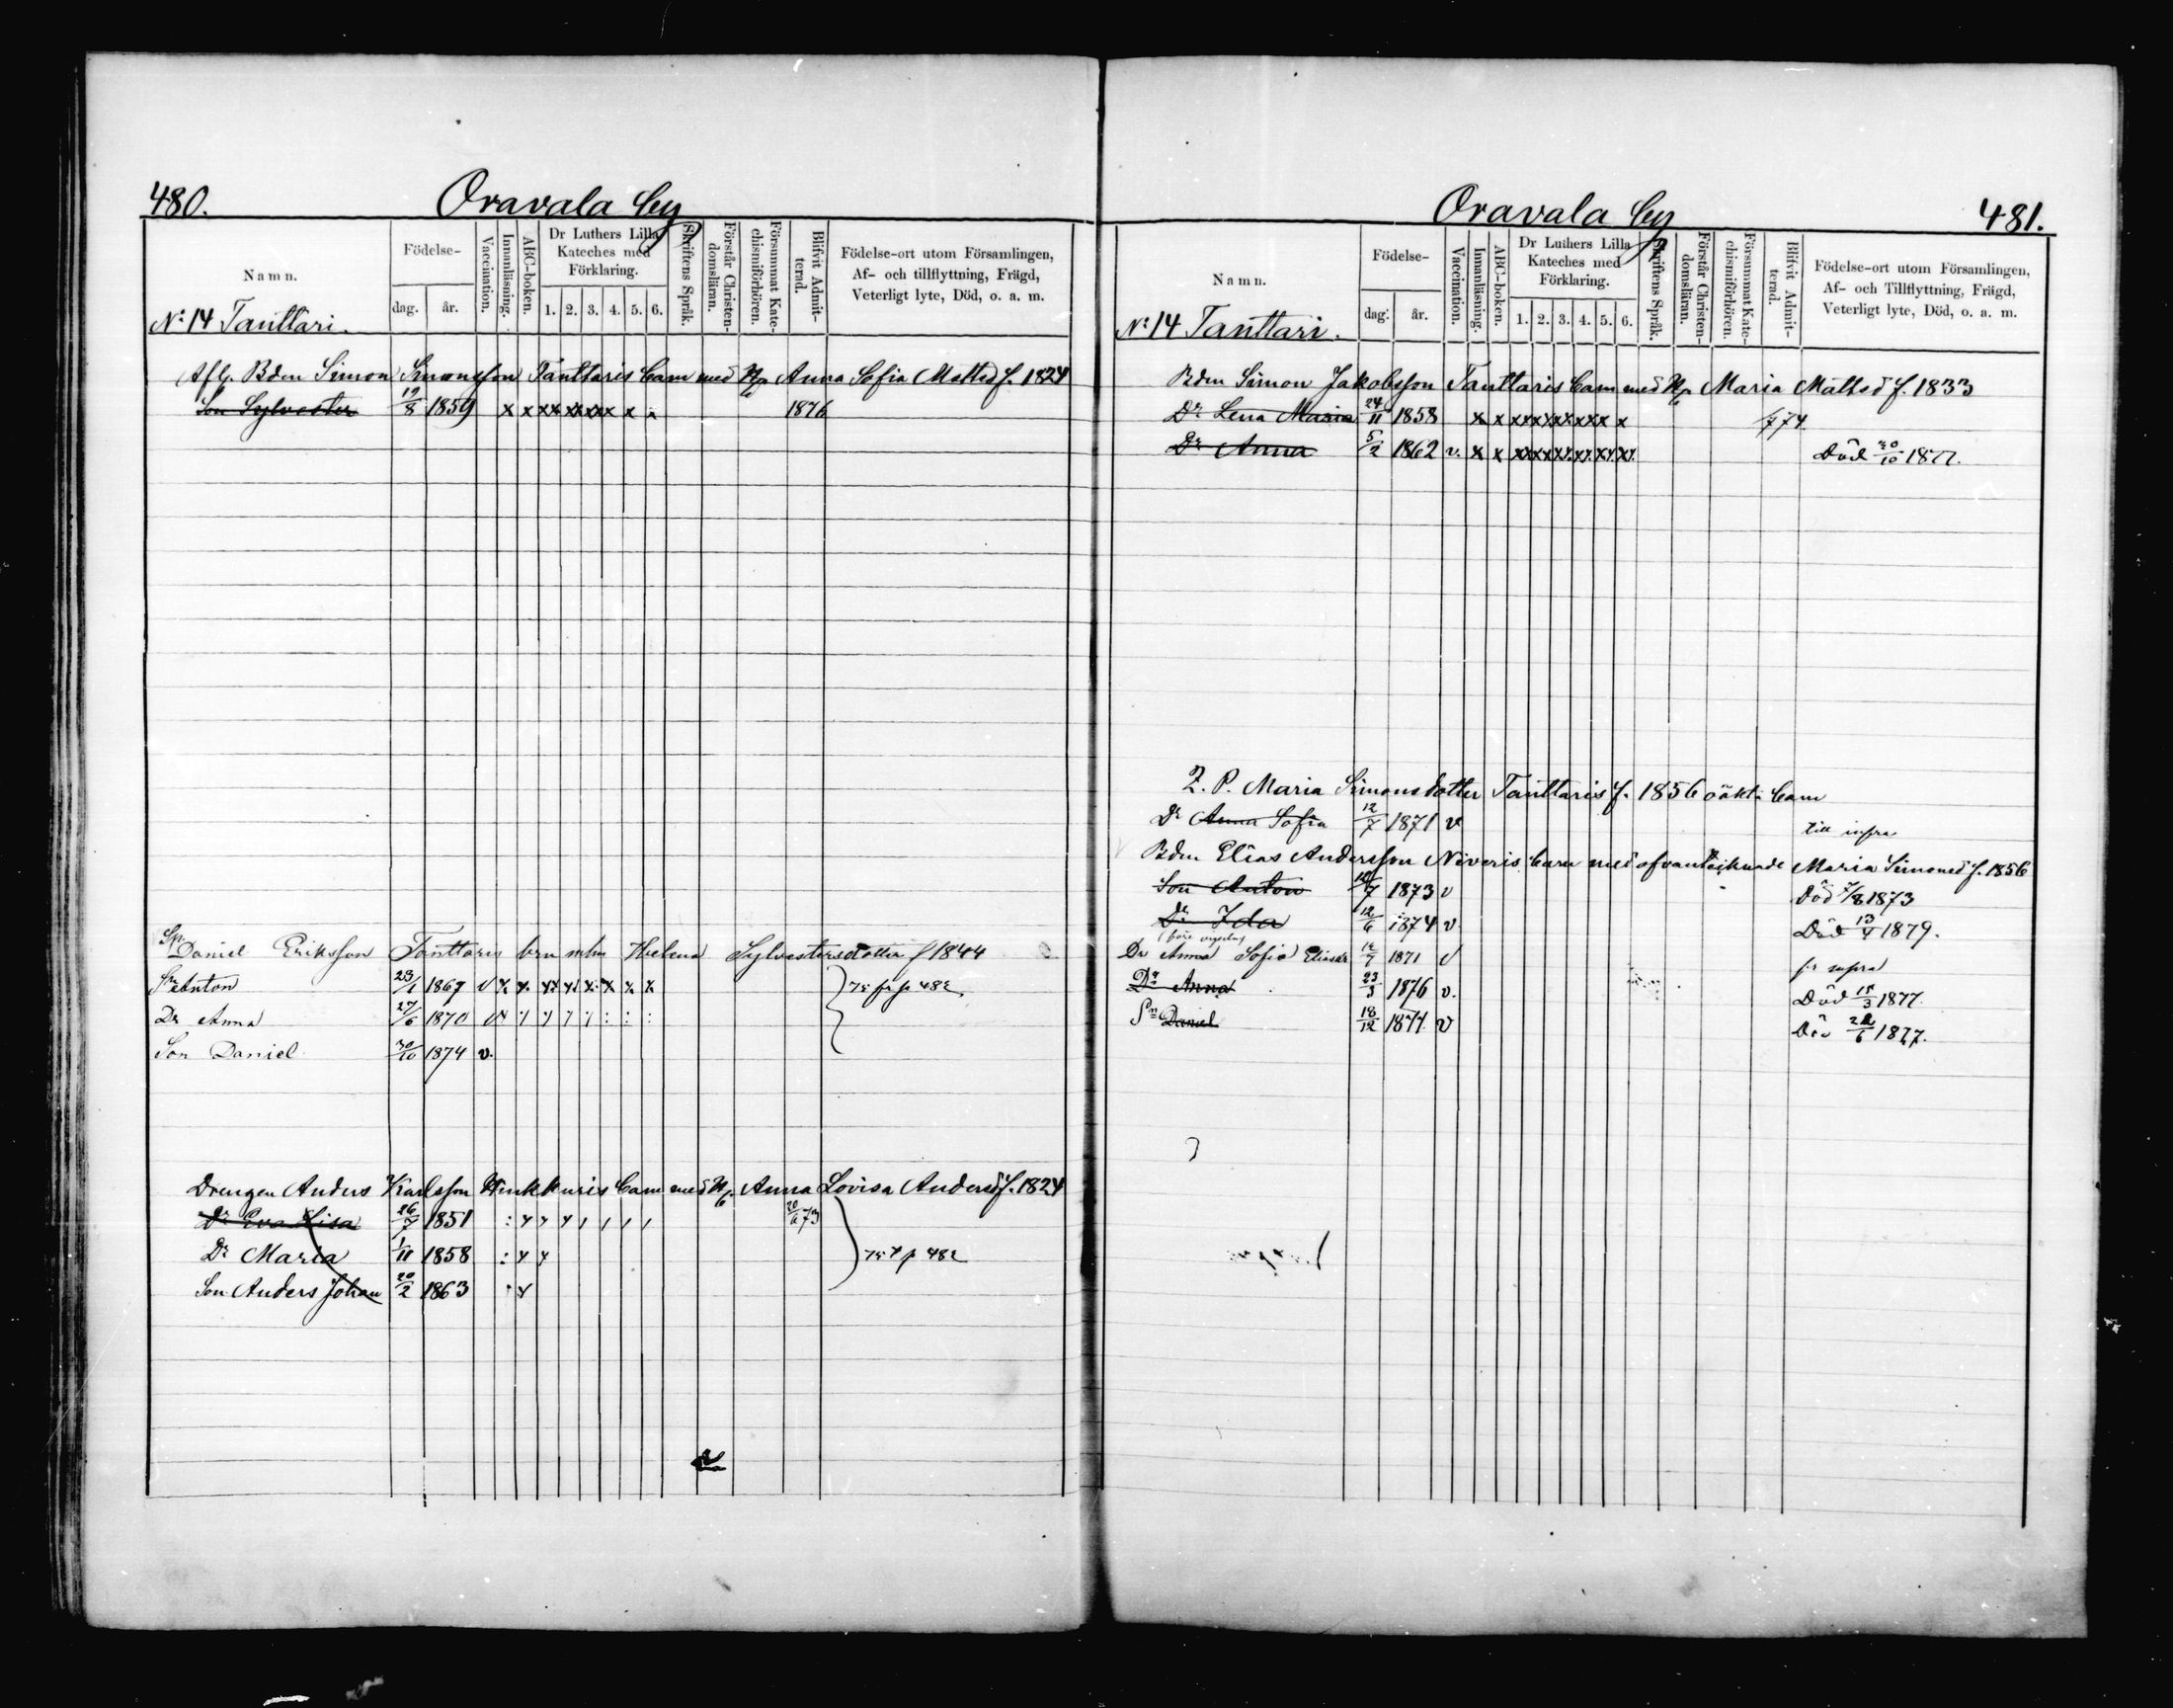 480.
Oravala by
Namn.
Födelse-
dag.
år.
Vaccination.
Innanläsning.
ABC-boken.
Dr Luthers Lilla
Kateches med
Förklaring.
1. 2. 3. 4. 5. 6.
Skriftens Språk.
Förstår Christen-
domsläran.
Försummat Kate-
chismiförhören.
Blifvit Admit-
terad.
Födelse-ort utom Församlingen,
Af- och tillflyttning, Frägd,
Veterligt lyte, Död, o. a. m.
No 14 Tanttari.
Afl. Bden Simon Simonsson Tanttaris barn med H. Anna Sofia Mattsd f. 1824
Son Sylvester 19/8 1859 x x xx xx xx x x x 1876
Daniel Eriksson Tanttaris brn mhu Helena Sylvestersdotter f 1844
Sn Anton 23/1 1867 v 75 fr p 482
Dr Anna 27/6 1870
Son Daniel 30/10 1874 v.
Drengen Anders Karlsson Hinkkuris barn med H. Anna Lovisa Andersd f. 1824
Dr Eva Lisa 26/7 1851 20/6 73
Dr Maria 1/11 1858 75 p 482
Son Anders Johan 20/2 1863
Oravala by
481.
Namn.
Födelse-
dag:
år.
Vaccination.
Innanläsning.
ABC-boken.
Dr Luthers Lilla
Kateches med
Förklaring.
1. 2. 3. 4. 5. 6.
Skriftens Språk.
Förstår Christen-
domsläran.
Försummat Kate-
chismiförhören.
Blifvit Admit-
terad.
Födelse-ort utom Församlingen,
Af- och Tillflyttning, Frägd,
Veterligt lyte, Död, o. a. m.
No 14 Tanttari.
Bden Simon Jakobsson Tanttaris barn med H. Maria Mattsd f. 1833
Dr Lena Maria 24/11 1858 x x xx xx xx xx x x 774
Dr Anna 5/2 1862 v. x x Död 30/10 1877.
Q. P. Maria Simonsdotter Tanttaris f. 1856 oäkt. barn
Dr Anna Sofia 12/7 1871 v till infra
Bden Elias Andersson Niveris barn med ofvantecknade Maria Simonsd f. 1856
Son Anton 7 1873 v Död 7/8 1873
Dr Ida 12/6 1874 v Död 13 1879.
Dr Anna Sofia Eliasdr 12/7 1871 v fr supra
Dr Anna 23/3 1876 v. Död 15/3 1877.
Sn Daniel 18/12 1877 v Död 6 1877.